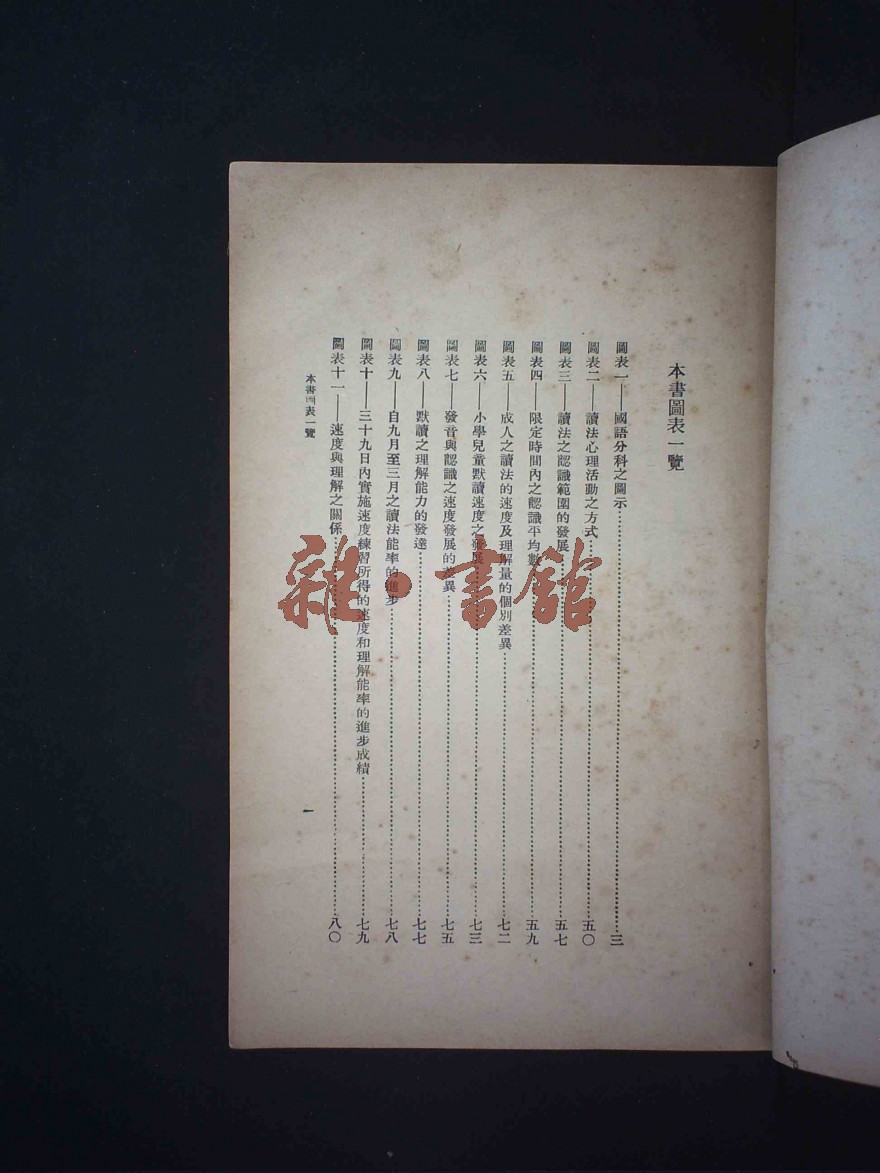 本書圖表一覽
圖表一——國語分科之圖示……三
圖表二——讀法心理活動之方式……五〇
圖表三——讀法之認識範圍的發展……五七
圖表四——限定時間內之認識平均數……五九
圖表五——成人之讀法的速度及理解量的個別差異……七二
圖表六——小學兒童默讀速度之發展……七三
圖表七——發音與認識之速度發展的差異……七五
圖表八——默讀之理解能力的發達……七七
圖表九——自九月至三月之讀法能率的進步……七八
圖表十——三十九日內實施速度練習所得的速度和理解能率的進步成績……七九
圖表十一——速度與理解之關係……八〇
本書圖表一覽
一
雜·書館